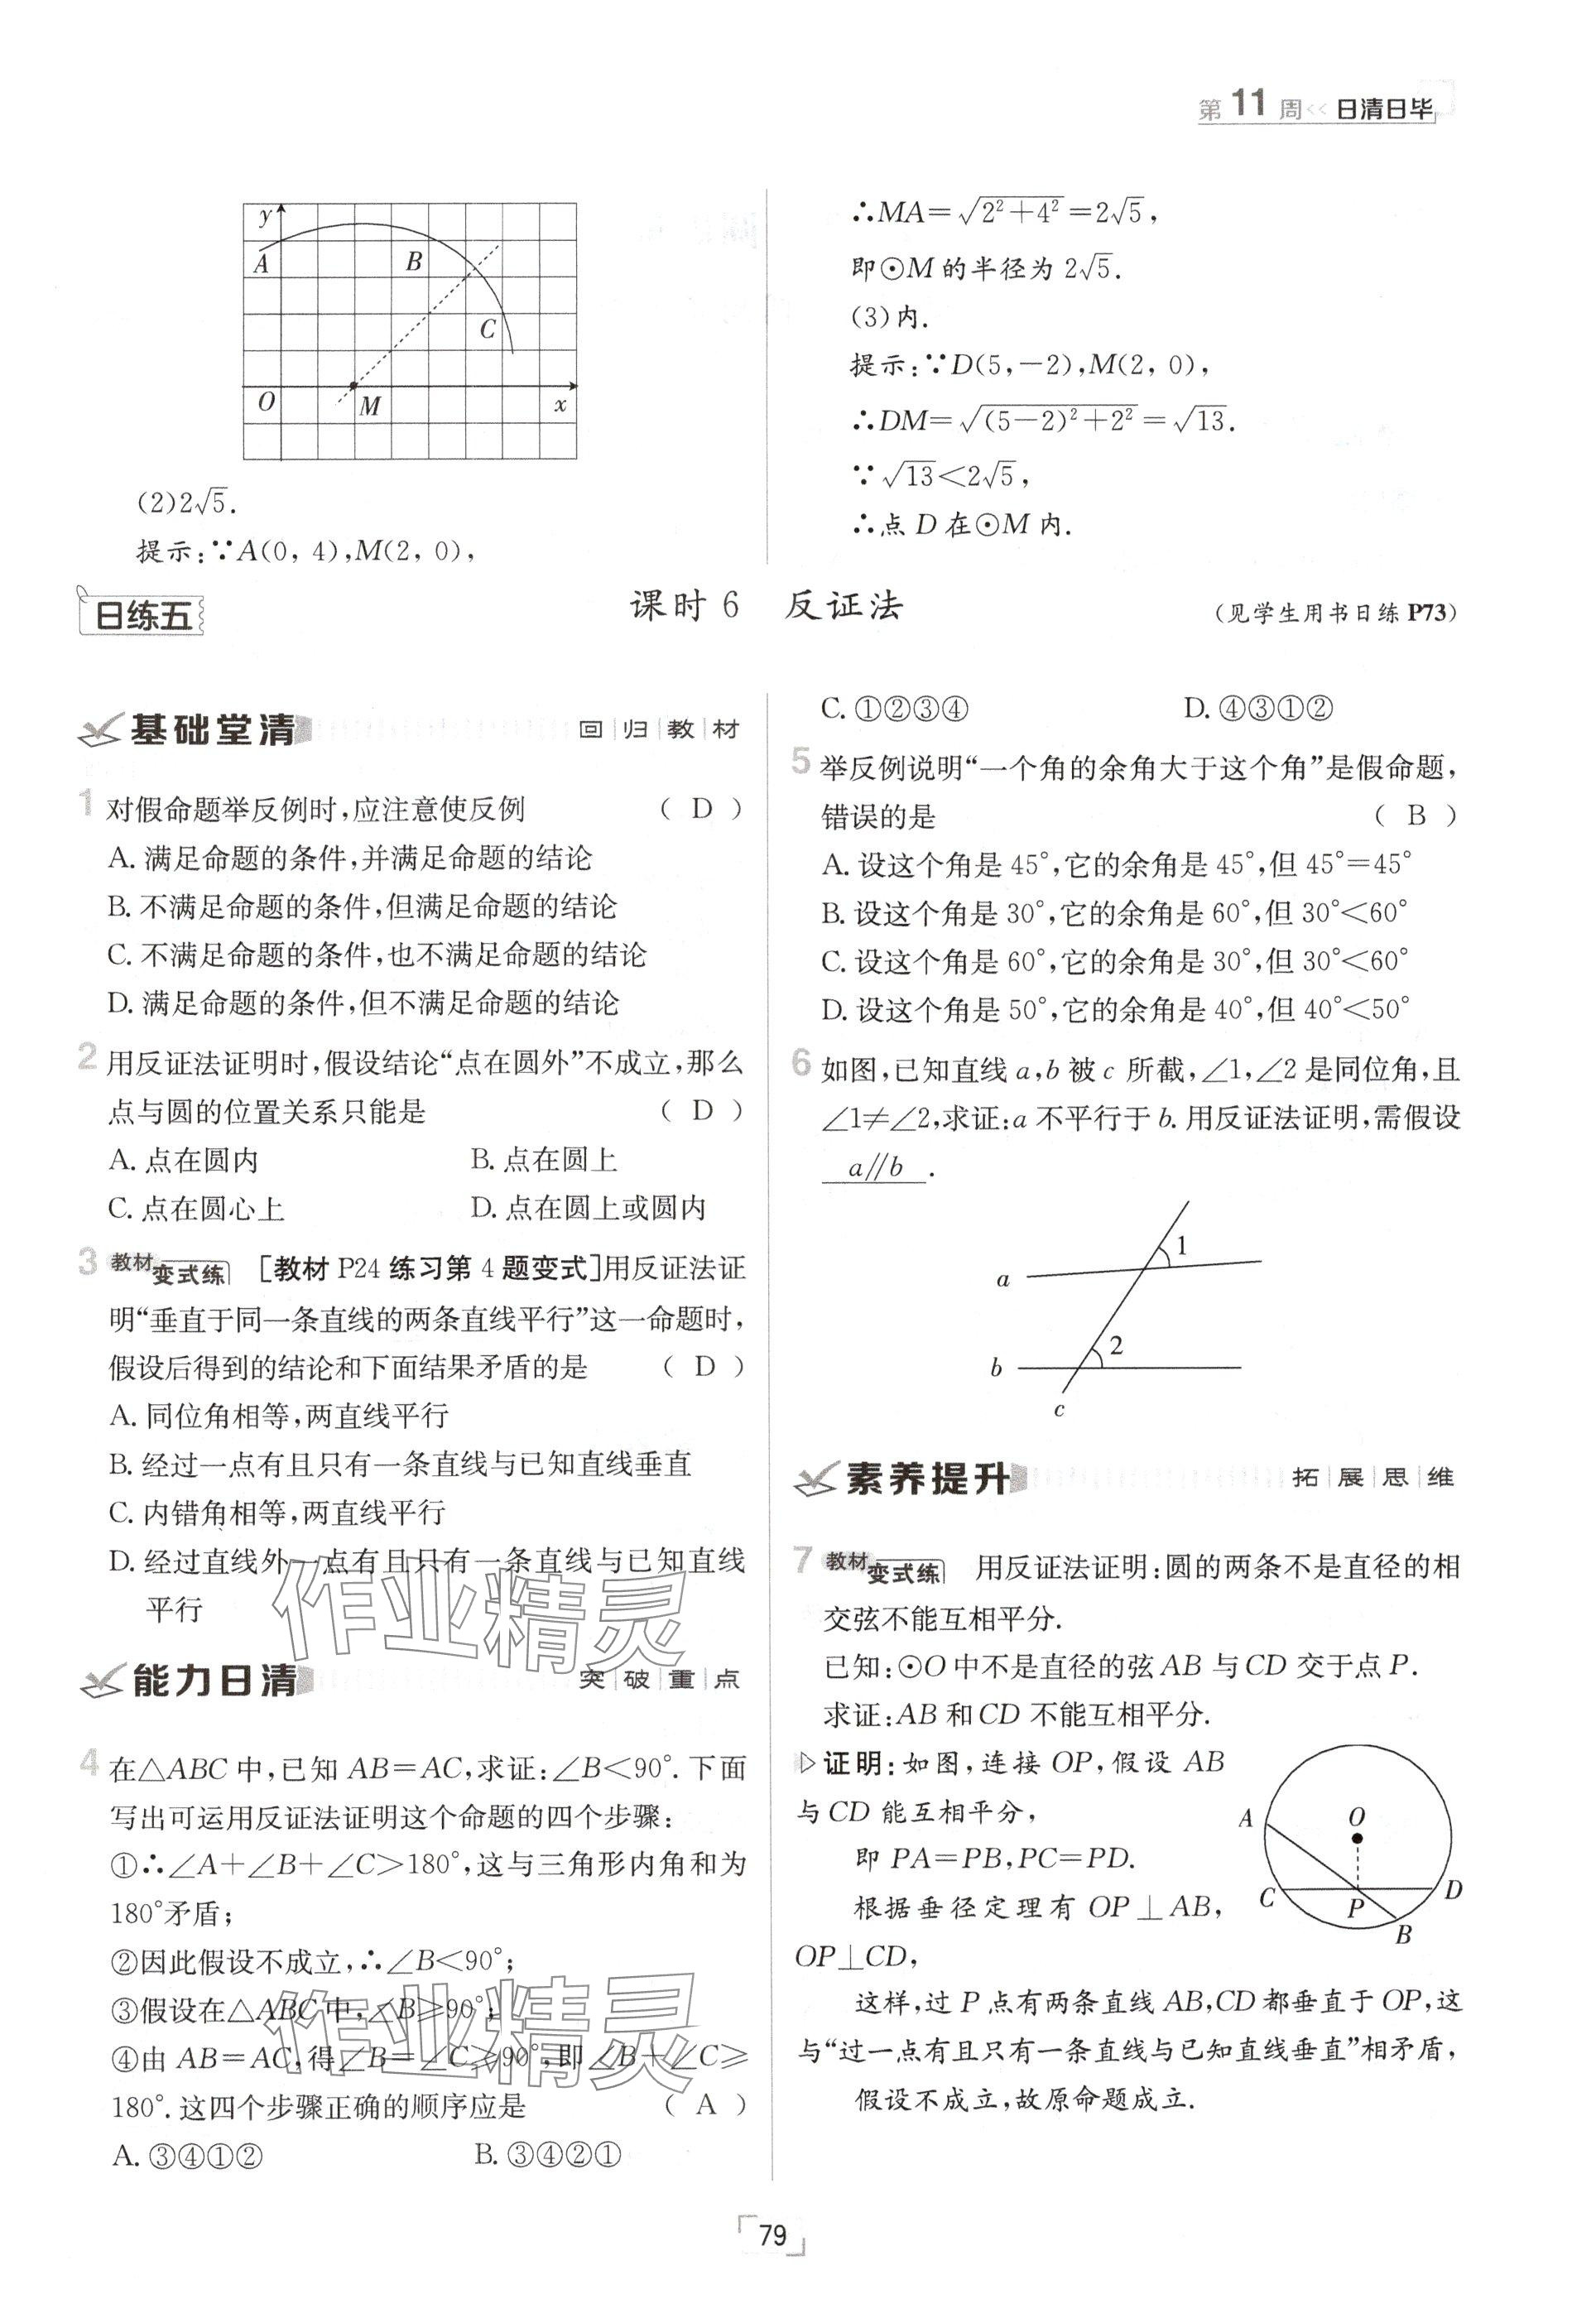 第 11 周<< 日清日毕
y
A
B
C
O
M
x
(2)2√5.
提示:∵A(0, 4),M(2, 0),
∴MA=√(2²+4²)=2√5,
即⊙M的半径为2√5.
(3)内.
提示:∵D(5,-2),M(2, 0),
∴DM=√((5-2)²+2²)=√13.
∵√13<2√5,
∴点D在⊙M内.
日练五
课时6 反证法
(见学生用书日练P73)
基础堂清
回归教材
1 对假命题举反例时,应注意使反例 ( D )
A. 满足命题的条件,并满足命题的结论
B. 不满足命题的条件,但满足命题的结论
C. 不满足命题的条件,也不满足命题的结论
D. 满足命题的条件,但不满足命题的结论
2 用反证法证明时,假设结论“点在圆外”不成立,那么
点与圆的位置关系只能是 ( D )
A. 点在圆内 B. 点在圆上
C. 点在圆心上 D. 点在圆上或圆内
3 教材变式练 [教材P24练习第4题变式]用反证法证
明“垂直于同一条直线的两条直线平行”这一命题时,
假设后得到的结论和下面结果矛盾的是 ( D )
A. 同位角相等,两直线平行
B. 经过一点有且只有一条直线与已知直线垂直
C. 内错角相等,两直线平行
D. 经过直线外一点有且只有一条直线与已知直线
平行
作业精灵
能力日清
突破重点
4 在△ABC中,已知AB=AC,求证:∠B<90°. 下面
写出可运用反证法证明这个命题的四个步骤:
①∴∠A+∠B+∠C>180°,这与三角形内角和为
180°矛盾;
②因此假设不成立,∴∠B<90°;
③假设在△ABC中,∠B≥90°;
④由AB=AC,得∠B=∠C≥90°,即∠B+∠C≥
180°. 这四个步骤正确的顺序应是 ( A )
作业精灵
A. ③④①② B. ③④②①
C. ①②③④ D. ④③①②
5 举反例说明“一个角的余角大于这个角”是假命题,
错误的是 ( B )
A. 设这个角是45°,它的余角是45°,但45°=45°
B. 设这个角是30°,它的余角是60°,但30°<60°
C. 设这个角是60°,它的余角是30°,但30°<60°
D. 设这个角是50°,它的余角是40°,但40°<50°
6 如图,已知直线a,b被c所截,∠1,∠2是同位角,且
∠1≠∠2,求证:a不平行于b. 用反证法证明,需假设
a∥b.
1
a
2
b
c
素养提升
拓展思维
7 教材变式练 用反证法证明:圆的两条不是直径的相
交弦不能互相平分.
已知:⊙O中不是直径的弦AB与CD交于点P.
求证:AB和CD不能互相平分.
▷证明:如图,连接OP,假设AB
与CD能互相平分,
即PA=PB,PC=PD.
根据垂径定理有OP⊥AB,
OP⊥CD,
A
O
C
P
D
B
这样,过P点有两条直线AB,CD都垂直于OP,这
与“过一点有且只有一条直线与已知直线垂直”相矛盾,
假设不成立,故原命题成立.
79